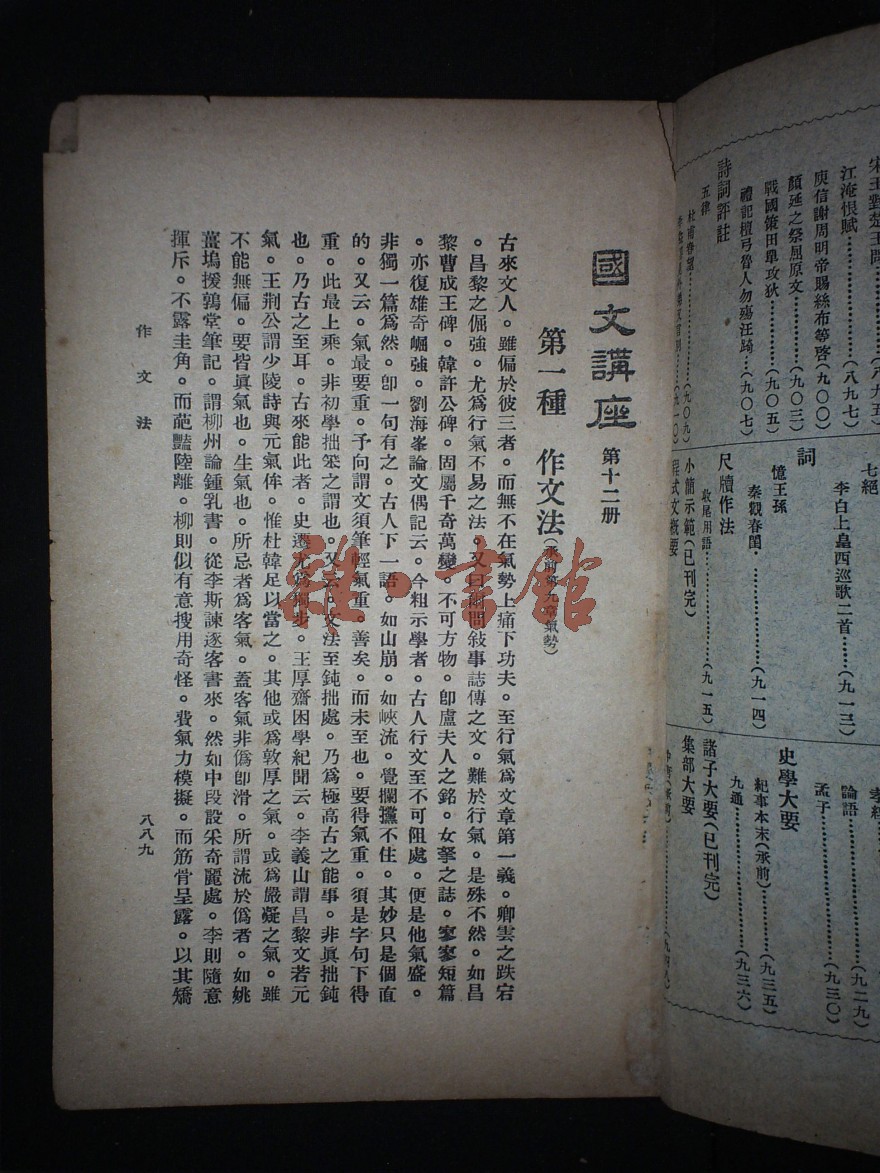 宋玉對楚王問……(八九五)
江淹恨賦……(八九七)
庾信謝周明帝賜絲布等啓(九〇〇)
顏延之祭屈原文……(九〇三)
戰國策田單攻狄……(九〇五)
禮記檀弓魯人勿殤汪踦…(九〇七)
詩詞評註
五律
杜甫春望……(九〇九)
七絕
李白上皇西巡歌二首……(九一三)
詞
憶王孫
秦觀春閨……(九一四)
尺牘作法
收尾用語……(九一五)
小簡示範(已刊完)
程式文概要
孝經
論語……(九二九)
孟子……(九三〇)
史學大要
紀事本末(承前)……(九三五)
九通……(九三六)
諸子大要(已刊完)
集部大要
國文講座 第十二册
第一種 作文法(承前第九章氣勢)
古來文人。雖偏於彼三者。而無不在氣勢上痛下功夫。至行氣爲文章第一義。卿雲之跌宕
。昌黎之倔強。尤爲行氣不易之法。又曰衚問敍事誌傳之文。難於行氣。是殊不然。如昌
黎曹成王碑。韓許公碑。固屬千奇萬變。不可方物。卽盧夫人之銘。女挐之誌。寥寥短篇
。亦復雄奇崛強。劉海峯論文偶記云。今粗示學者。古人行文至不可阻處。便是他氣盛。
非獨一篇爲然。卽一句有之。古人下一語。如山崩。如峽流。覺攔攩不住。其妙只是個直
的。又云。氣最要重。予向謂文須筆輕氣重。善矣。而未至也。要得氣重。須是字句下得
重。此最上乘。非初學拙笨之謂也。又云。文法至鈍拙處。乃爲極高古之能事。非眞拙鈍
也。乃古之至耳。古來能此者。史遷尤爲獨步。王厚齋困學紀聞云。李義山謂昌黎文若元
氣。王荆公謂少陵詩與元氣侔。惟杜韓足以當之。其他或爲敦厚之氣。或爲嚴凝之氣。雖
不能無偏。要皆眞氣也。生氣也。所忌者爲客氣。蓋客氣非僞卽滑。所謂流於僞者。如姚
薑塢援鶉堂筆記。謂柳州論鍾乳書。從李斯諫逐客書來。然如中段設采奇麗處。李則隨意
揮斥。不露圭角。而葩豔陸離。柳則似有意搜用奇怪。費氣力模擬。而筋骨呈露。以其矯
作文法
八八九
雜·書館